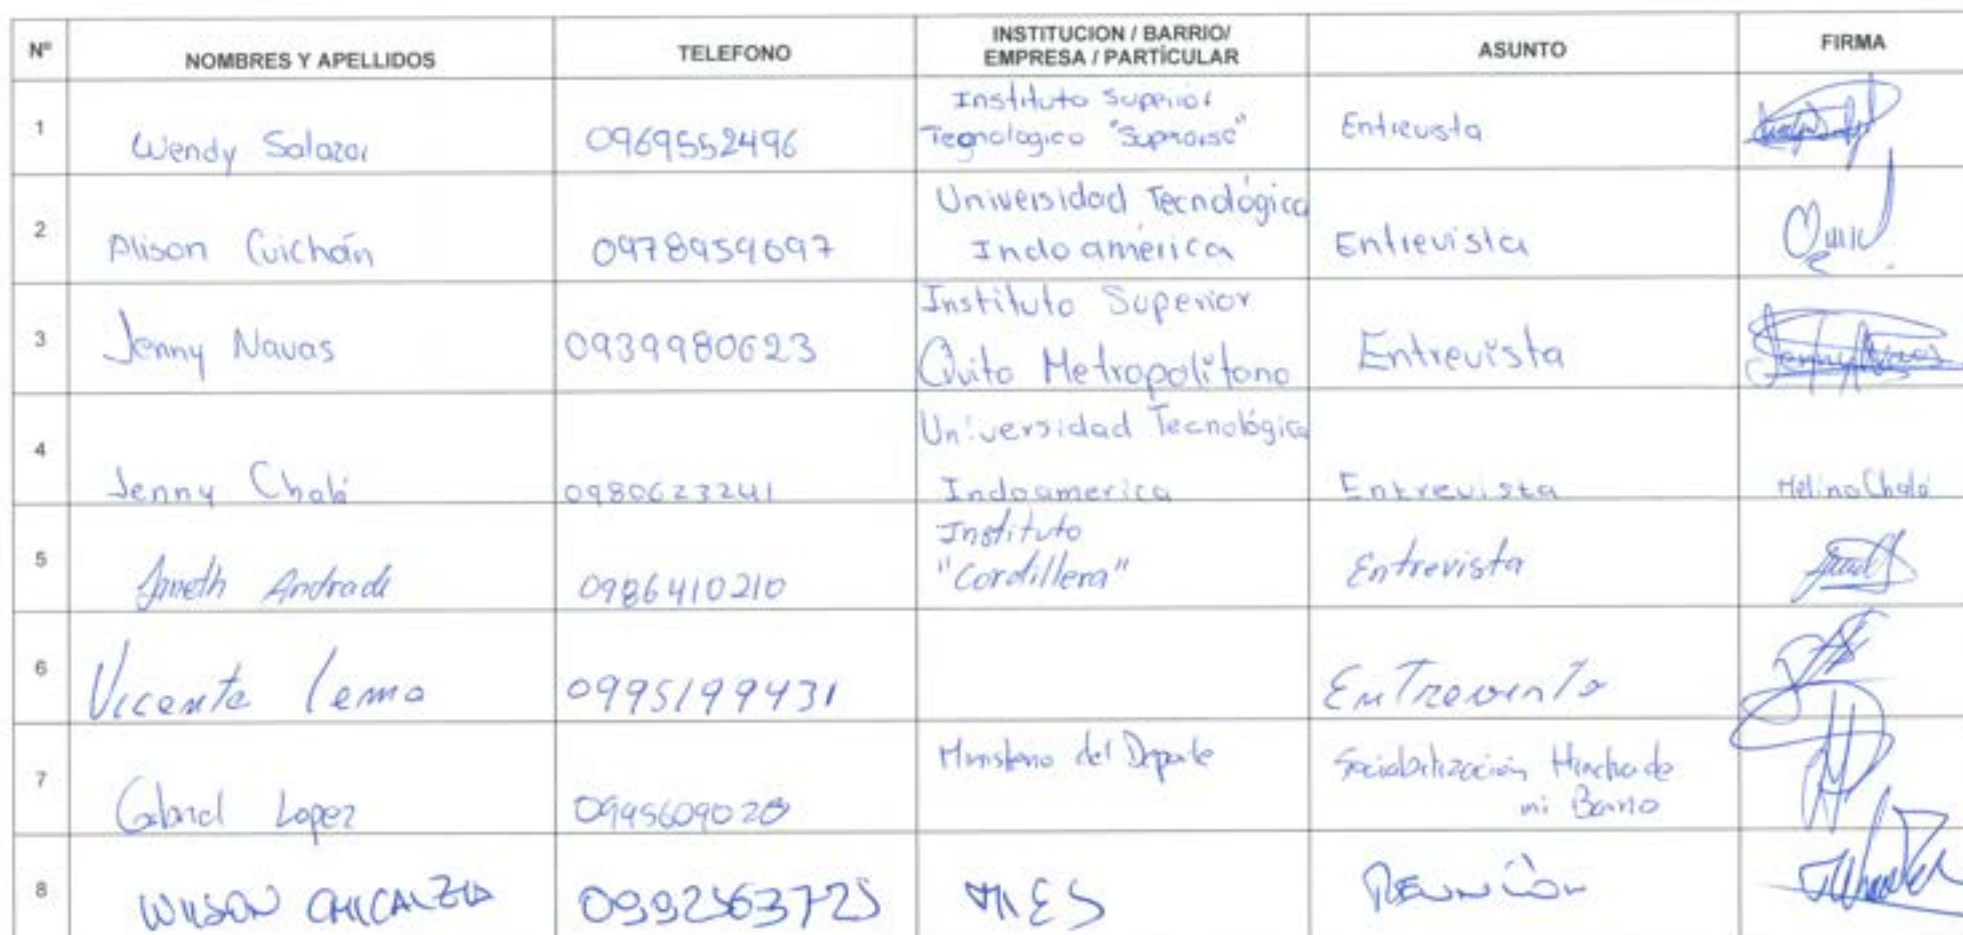 Nº NOMBRES Y APELLIDOS TELEFONO INSTITUCION / BARRIO/ EMPRESA / PARTÍCULAR ASUNTO FIRMA
1 Wendy Salazar 0969552496 Instituto Superior Tegnologico Entrevista
2 Alison Cuichán 0978959697 Universidad Tecnológica Indoamérica Entrevista
3 Jenny Navas 0939980623 Instituto Superior Quito Metropolitano Entrevista Jenny Navas
4 Jenny Chalá 0980623241 Universidad Tecnológica Indoamerica Entrevista Melina Chalá
5 Janeth Andrade 0986410210 Instituto "Cordillera" Entrevista
6 Vicente Lema 0995199431 Entrevista
7 Gabriel Lopez 0995609020 Ministerio del Deporte Sociabilización Hincha de mi Barrio
8 WILSON 0992563725 MIES REUNIÓN